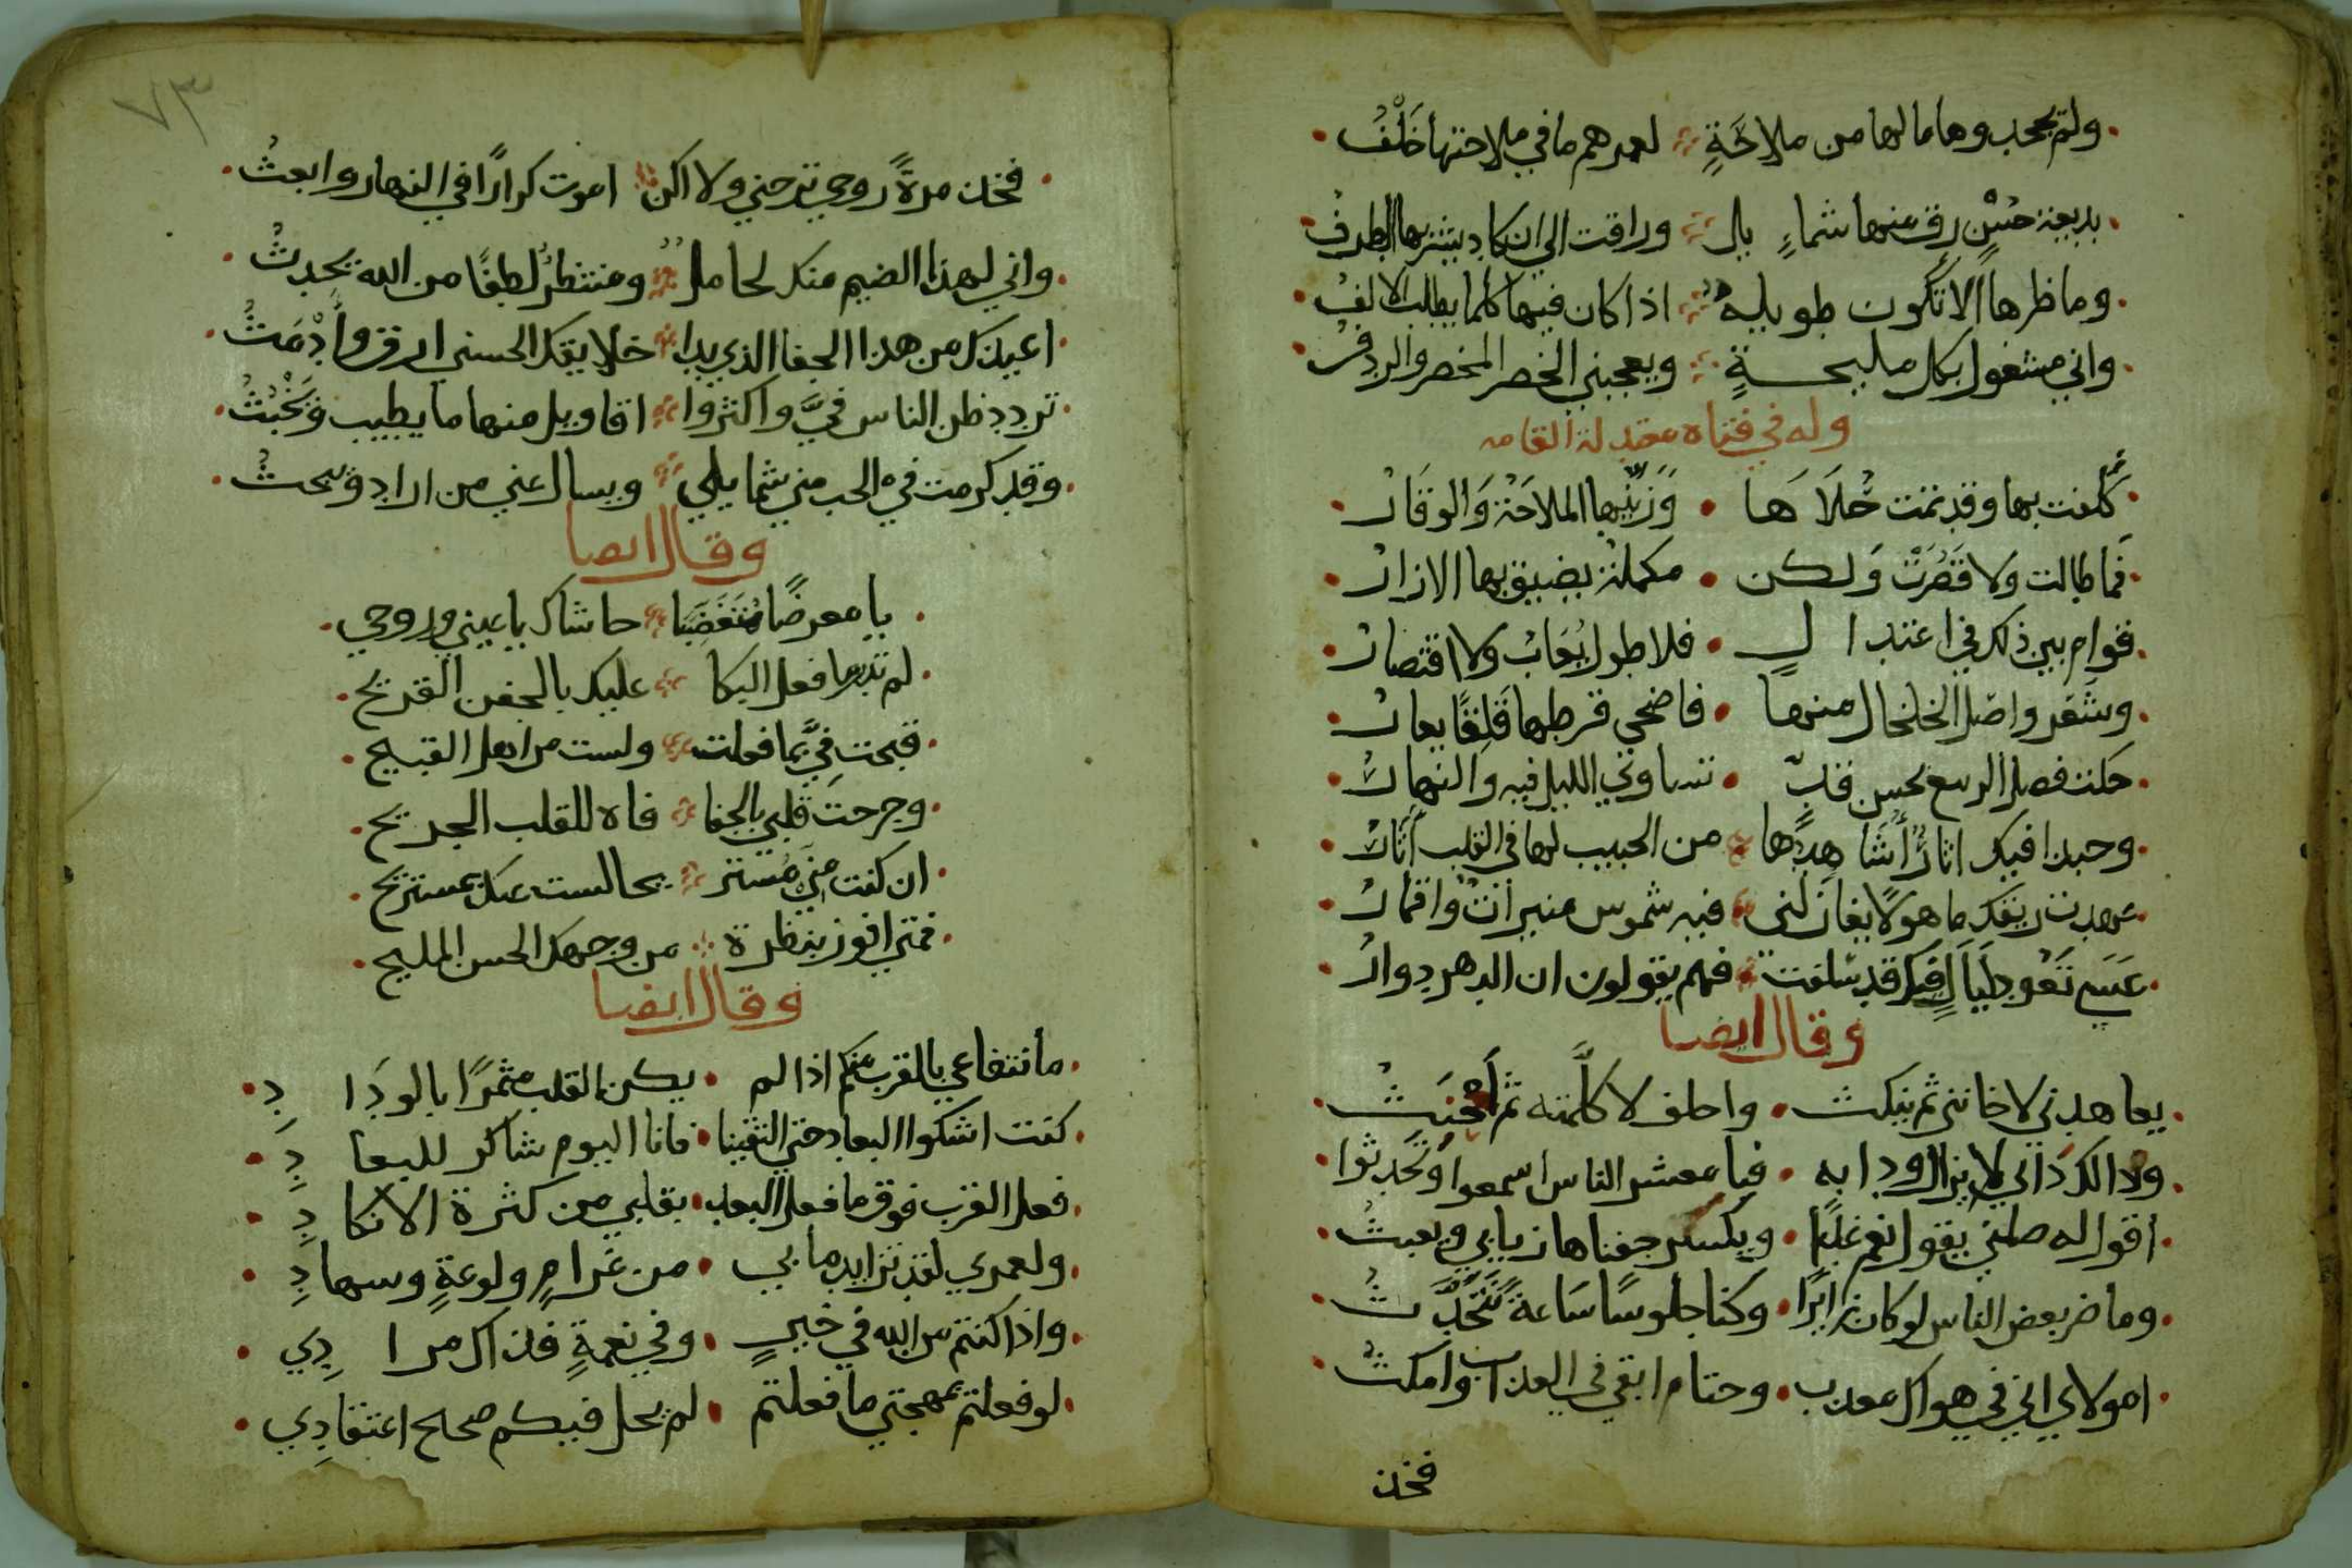 ولم يجحدوها ما لها من ملاحةٍ لعمرهم ما في ملاحتها خَلْفُ
بديعة حسْنٍ رق منها شماءٍ يل وراقت الى ان كاد يشربها الطرفُ
وما ظرها الا تكون طويلة اذا كان فيها كلما يطلب الالفُ
واني مشغول بكل مليحـــةٍ ويعجبني الخصر المخصر والردفُ
وله في فتاه معتدلة القامه
كَلفت بها وقد تمت حُلَاهَا وَزَيَّنها الملاحَة وَالوقَارُ
فَما طالت ولا قَصُرَتْ وَلكن مكملة يضيق بها الازارُ
قوام بين ذلك في اعتدا لٍ فلا طول يُعَابُ ولا اقتصارُ
وشَعر واصَل الخلخال منها فاضحى قرطها قَلِقًا يعارُ
حكت فصل الربيع بحسن قدٍّ تساوى الليل فيه والنهارُ
وحبذا فيك اثارٌ أُشَاهِدُها من الحبيب لها في القلب أثَارُ
عهدت ربعك ماهولًا يغازلنى فيه شموس منيرات واقمارُ
عَسَى تَعُود لَيَالٍ فيك قد سلفت فهم يقولون ان الدهر دوارُ
وقال ايضا
يعاهدني لا خانني ثم ينكث واحلف لا كلَّمته ثم أحنَثُ
وذالك دَاني لا يزال ودابه فيا معشر الناس اسمعوا وتَحَدثوا
اقول له صلني يقول نعم غدًا ويكسر جفنا هازيا بي ويعبثُ
وما ضر بعض الناس لو كان زايرًا وكنا جلوسًا سَاعة نَتَحَدَّ ثُ
امولاي اني في هواك معدب وحتام ابقى في العذاب وامكثُ
فخذ
٧٣
فخذ مرةً روحي ترحني ولا اكن اموت كرارًا في النهار وابعثُ
واني لهذا الضيم منك لحامل ومنتظرٌ لطفًا من الله يَحدثُ
اعيذك من هذا الجفا الذي بدا خلايقك الحسنى ارق وأَدْمَثُ
تردد ظن الناس فيَّ واكثروا اقاويل منها ما يطيب وَيَخْبُثُ
وقد كرمت في الحب مني شمايلي ويسال عني من اراد ويبحثُ
وقال ايضا
يا معرضًا مُتَغَضِّبَا حاشاك يا عيني وروحي
لم تدر ما فعل البكا عليك بالجفن القريحِ
قبحت فيَّ بما فعلت ولست من اهل القبيح
وجرحتَ قلبي بالجفا فاه للقلب الجريح
ان كنت مني مُستريحا لست عنك بمستريح
فمتى افوز بنظرة من وجهك الحسن المليح
وقال ايضا
ما انتفاعي بالقرب منكم اذا لم يكن القلب مثمرًا بالودَا دِ
كنت اشكوا البعاد حتى التقينا فانا اليوم شاكر للبعا دِ
فعل القرب فوق ما فعل البعد بقلبي من كثرة الانكا دِ
ولعمري لقد تزايد ما بي من غرامٍ ولوعةٍ وسهادِ
واذا كنتم من الله في خيرٍ وفي نعمةٍ فذاك مرا دِي
لو فعلتم بمهجتي ما فعلتم لم يحل فيكم صحاح اعتقادِي